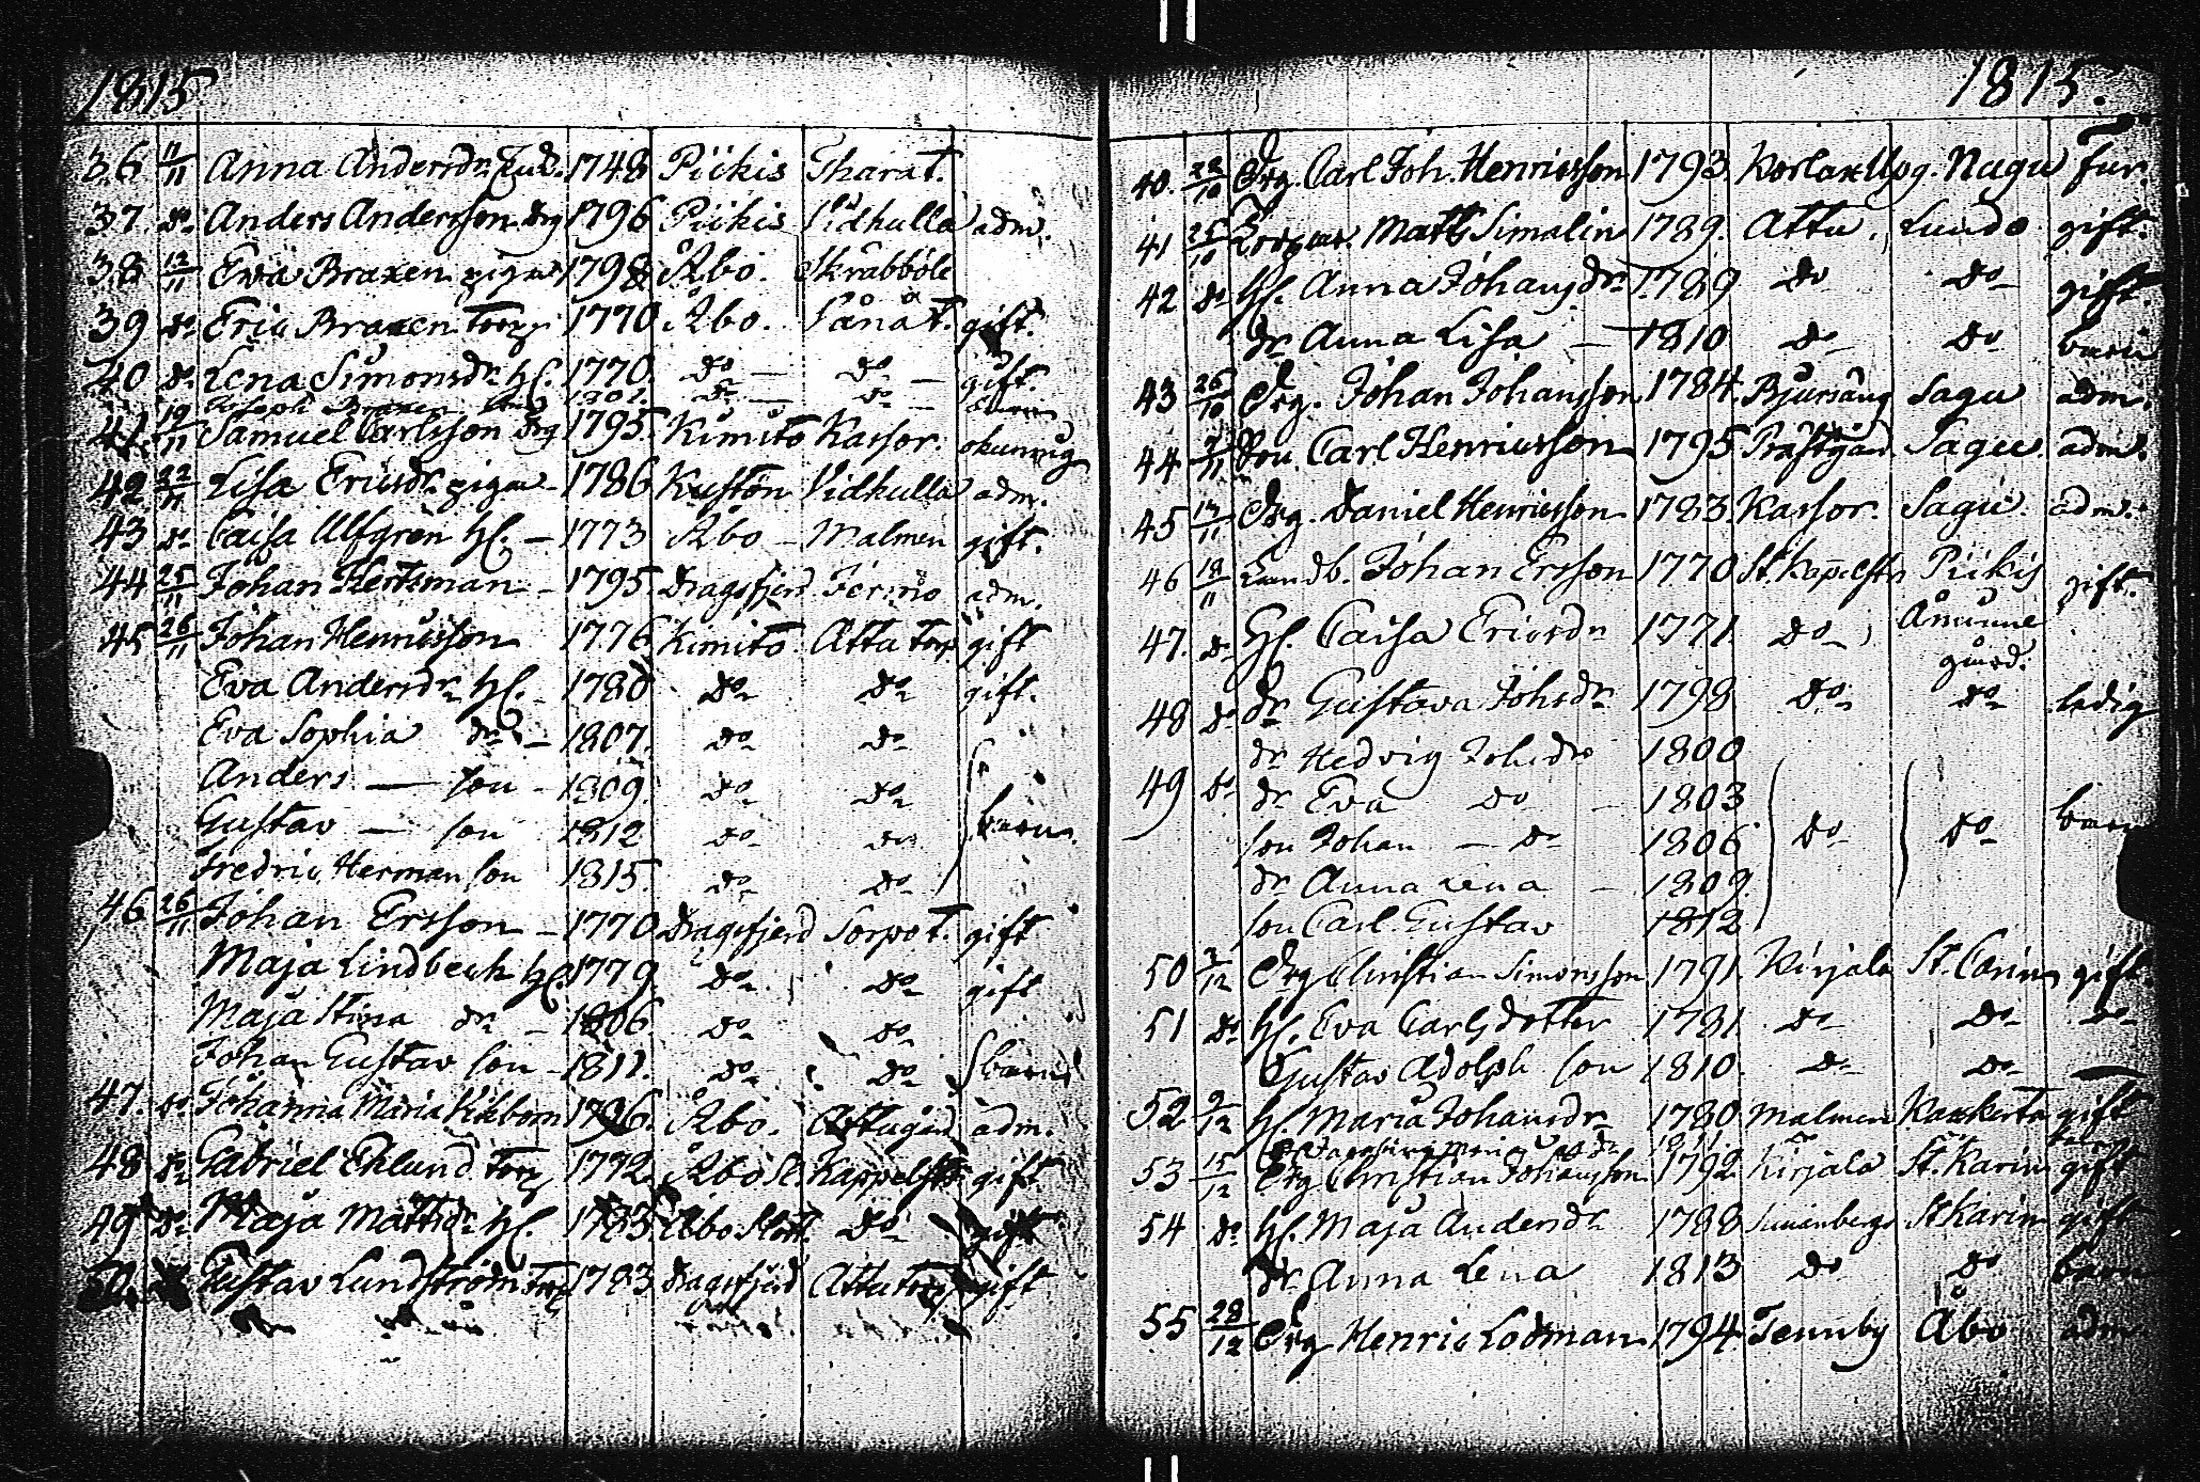 1815
36 11/11 Anna Andersdr 1748 Piikis Tharat.
37. do Anders Andersson drg 1796 Piikis Vidkulla adm.
38 12/11 Eva Braxen piga 1798 Åbo. Skräbböle
39 do Eric Braxen Torp 1770 Åbo. gift.
40 do Lena Simonsdr H. 1770. do — do — gift.
Joseph Braxen do — do —
41. 19/11 Samuel Carlsson drg 1795. Kimito Kassor. okunnig
42 22/11 Lisa Ericsdr. piga 1786 Kustön Vidkulla adm.
43 do Caisa Ulfgren H. — 1773 Åbo — Malmen gift.
44 25/11 Johan Hertsman — 1795. Dragsfjerd adm.
45 26/11 Johan Henricsson 1776 Kimito Attu torp gift
Eva Andersdr H. — 1780 do do gift.
Eva Sophia dr — 1807. do do
Anders — son — 1809. do do
Gustav — son 1812 do do barn.
Fredric Herman son 1815. do do
46 26/11 Johan Ersson — 1770 Dragsfjerd Sorpo t. gift
Maja Lindbeck H. 1779 do do gift
Maja Stina dr — 1806 do do
Johan Gustav son — 1811. do do barn
47. do Johanna Maria 1796. Åbo. Attugård adm.
48 do Gabriel Eklund Torp 1772 Åbo Sl. Kappelstr gift
49 do Maja Mattsdr H. Åbo Slott. do gift
50. Gustav Lundström Torp 1783 Dragsfjerd Attu torp gift
1815.
40. 28/10 Drg. Carl Joh. Henricsson 1793. Korlax Upg. Nagu
41 25/10 Matts Simalin 1789. Attu. Lundo gift.
42 do H. Anna Johansdr 1789 do do gift.
dr Anna Lisa — 1810 do do barn
43 26/10 Drg. Johan Johansson 1784. Bjursäng Sagu adm.
44 Carl Henricsson 1795 Prästgård Sagu adm.
45 Drg. Daniel Henricsson 1783. Kassor. Sagu. adm.
46 18/11 Landb. Johan Ersson 1770 St. Kappelstr Piikis gift.
47. do H. Caisa Ericsdr 1771. do
48 do dr Gustava Johsdr 1798 do do ledig
dr Hedvig Johsdr 1800
49 do dr Eva do — 1803
son Johan — do 1806 do do barn
dr Anna Lena — 1809
son Carl Gustav 1812
50 Drg Christian Simonsson 1791. Kirjala St. Carins gift.
51 do H. Eva Carlsdotter 1781 do do do
Gustav Adolph son 1810. do do —
52 H. Maria Johansdr 1780 Malmen gift
1811
53 15/12 Drg. Christian Johansson 1792 Kirjala St. Karins gift
54 do H. Maja Andersdr 1788 St Karins gift
dr. Anna Lena 1813 do do barn
55 28/12 Drg Henric Lodman 1794. Tennby Åbo adm